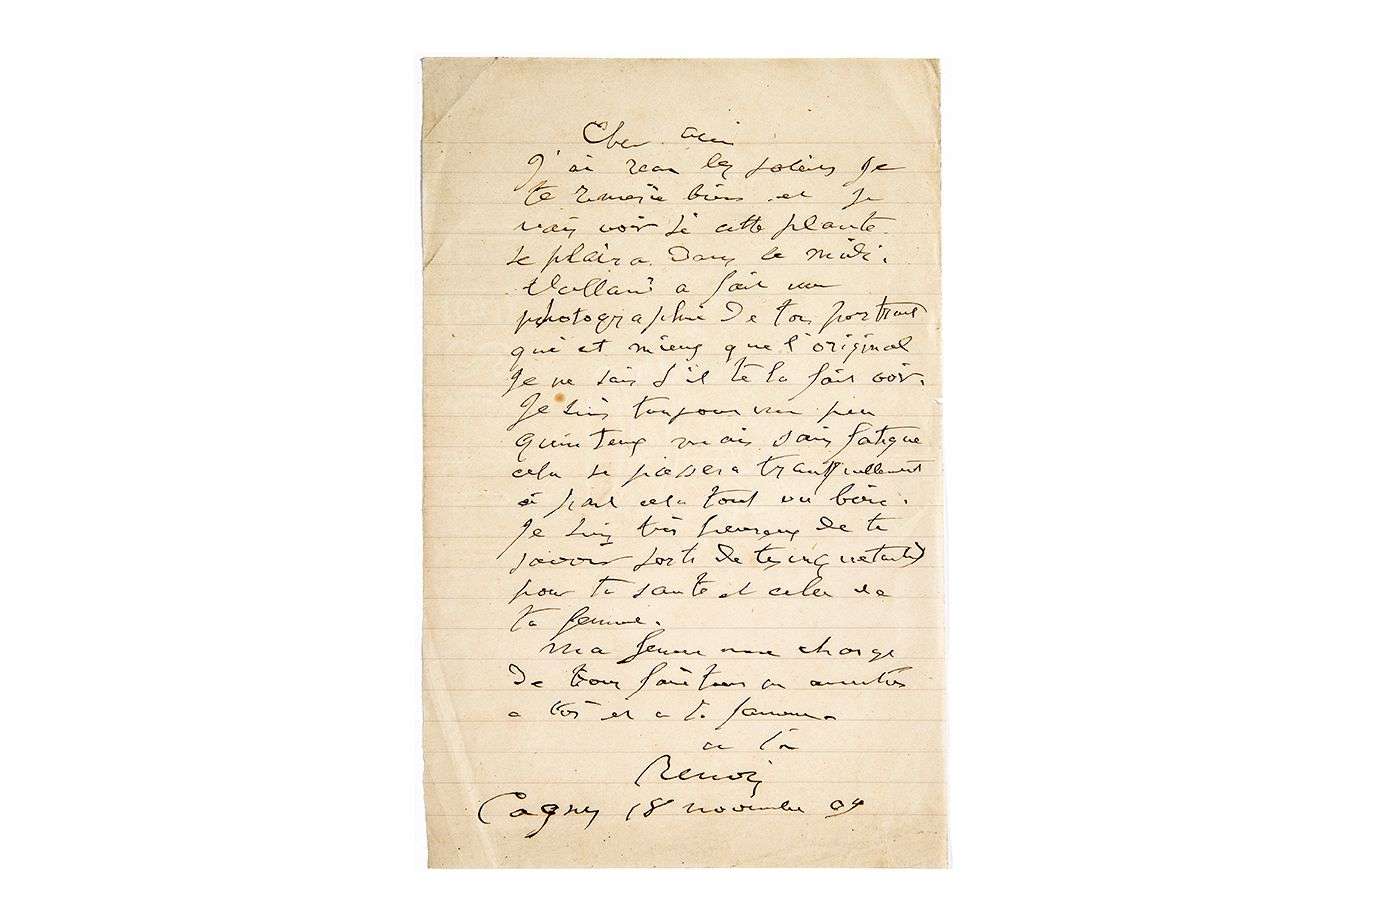 Cher ami
J'ai reçu les soleils je
te remercie bien et je
vais voir si cette plante
se plaira dans le midi.
Vollard a fait une
photographie de ton portrait
qui est mieux que l'original
Je ne sais s'il te la fait voir.
Je suis toujours un peu
quinteux mais sans fatigue
cela se passera tranquillement
à part cela tout va bien.
Je suis très heureux de te
savoir sorti de tes inquietudes
pour ta santé et celle de
ta femme.
Ma femme me charge
de vous faire tous ses amitiés
a toi et a ta femme.
a toi
Renoir
Cagnes 18 novembre 09